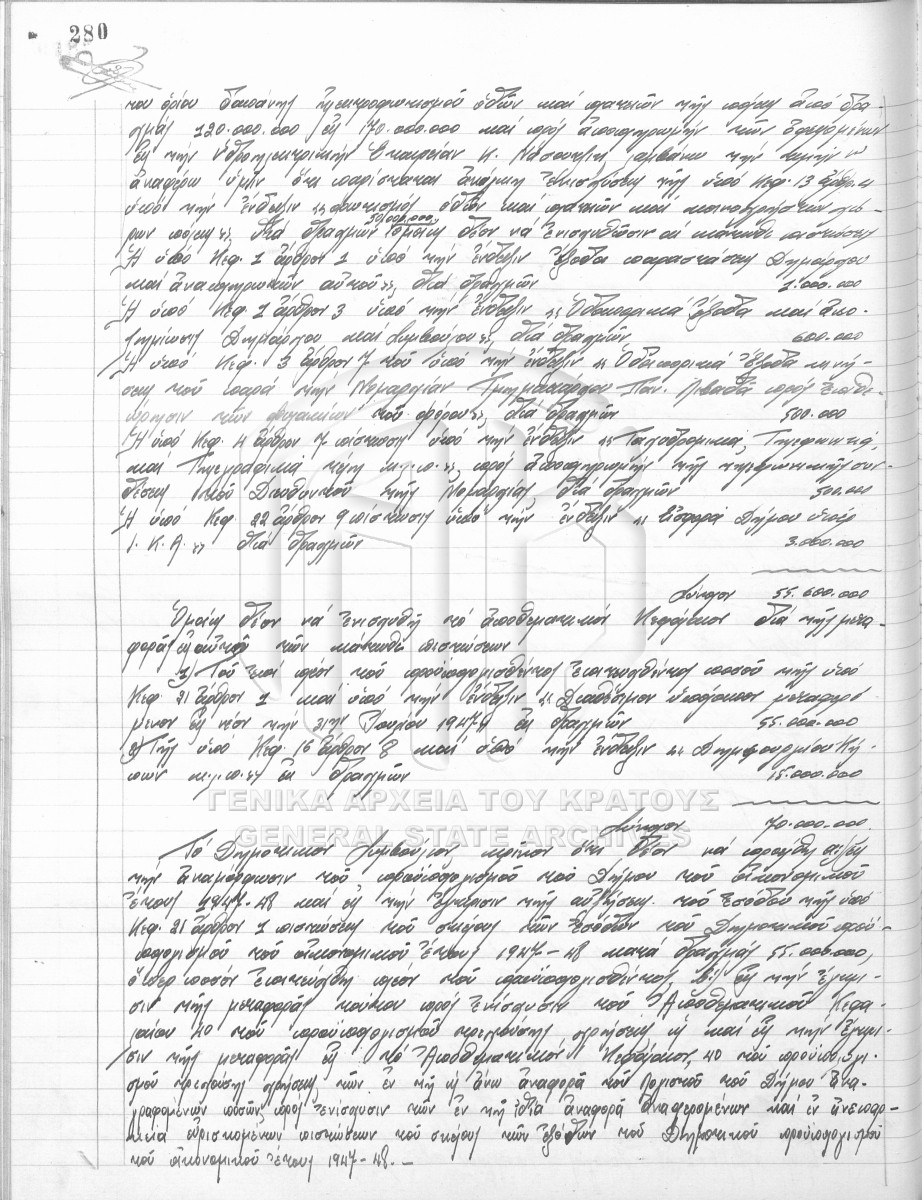 280
του ορίου δαπάνης ηλεκτροφωτισμού οδών και πλατειών της πόλεως από δρα-
χμάς 120.000.000 εις 170.000.000 και προς αποπληρωμήν των οφειλομένων
εις την Υδροηλεκτρικήν Εταιρείαν Κ. Νάουσης, λαμβάνω την τιμήν ν'
αναφέρω υμίν ότι παρίσταται ανάγκη ενισχύσεως της υπό Κεφ. 13 άρθρ. 4
υπό την ένδειξιν "φωτισμός οδών και πλατειών και κοινοχρήστων χώ-
ρων πόλεως", διά δραχμών 50.000.000. Ομοίως δέον να ενισχυθώσιν αι κάτωθι πιστώσεις
Η υπό Κεφ. 1 άρθρον 1 υπό την ένδειξιν Έξοδα παραστάσεως Δημάρχου
και αναπληρωτών αυτού", διά δραχμών 1.000.000
Η υπό Κεφ. 1 άρθρον 3 υπό την ένδειξιν "Οδοιπορικά έξοδα και απο-
ζημίωσις Δημάρχου και Συμβούλου", διά δραχμών 600.000
Η υπό Κεφ. 3 άρθρον 7 του υπό την ένδειξιν "Οδοιπορικά έξοδα κινή-
σεως του παρά την Νομαρχίαν Τμηματάρχου Παν. Λιβαδά προς επιθε-
ώρησιν των του φόρου", διά δραχμών 500.000
Η υπό Κεφ. 4 άρθρον 7 πίστωσις υπό την ένδειξιν "Ταχυδρομικά, Τηλεφωνικά,
και Τηλεγραφικά τέλη κ.λ.π.", προς αποπληρωμήν της τηλεφωνικής συν-
δέσεως του Διευθυντού της Νομαρχίας, διά δραχμών 500.000
Η υπό Κεφ. 22 άρθρον 9 πίστωσις υπό την ένδειξιν "Εισφορά Δήμου υπέρ
Ι.Κ.Α." διά δραχμών 3.000.000
Σύνολον 55.600.000
Ομοίως δέον να ενισχυθή το αποθεματικόν Κεφάλαιον διά της μετα-
φοράς εις αυτό των κάτωθι πιστώσεων
1) Του επί πλέον του προϋπολογισθέντος εισπραχθέντος ποσού της υπό
Κεφ. 21 άρθρον 1 και υπό την ένδειξιν "Διαθέσιμον υπόλοιπον μεταφερό-
μενον εις νέον την 31ην Ιουλίου 1947" εκ δραχμών 55.000.000
2) Της υπό Κεφ. 16 άρθρον 8 και υπό την ένδειξιν "Δημιουργίαν Κή-
πων κ.λ.π." εκ δραχμών 15.000.000
Σύνολον 70.000.000
ΓΕΝΙΚΑ ΑΡΧΕΙΑ ΤΟΥ ΚΡΑΤΟΥΣ
GENERAL STATE ARCHIVES
Το Δημοτικόν Συμβούλιον κρίνον ότι δέον να προέλθη α) εις
την αναμόρφωσιν του προϋπολογισμού του Δήμου του οικονομικού
έτους 1947-48 και εις την έγκρισιν της αυξήσεως του εσόδου της υπό
Κεφ. 21 άρθρον 1 πιστώσεως του σκέλους των Εσόδων του Δημοτικού προϋ-
πολογισμού του οικονομικού έτους 1947-48 κατά δραχμάς 55.000.000,
όπερ ποσόν εισεπράχθη πλέον του προϋπολογισθέντος, β) εις την έγκρι-
σιν της μεταφοράς τούτου προς ενίσχυσιν του Αποθεματικού Κεφα-
λαίου 40 του προϋπολογισμού τρεχούσης χρήσεως ως και εις την έγκρι-
σιν της μεταφοράς εις το Αποθεματικόν Κεφάλαιον 40 του προϋπολογι-
σμού τρεχούσης χρήσεως των εν τη ως άνω αναφορά του Λογιστού του Δήμου ανα-
γραφομένων ποσών προς ενίσχυσιν των εν τη ιδία αναφορά αναφερομένων και εν ανεπαρ-
κεία ευρισκομένων πιστώσεων του σκέλους των εξόδων του Δημοτικού προϋπολογισμού
του οικονομικού έτους 1947-48.-